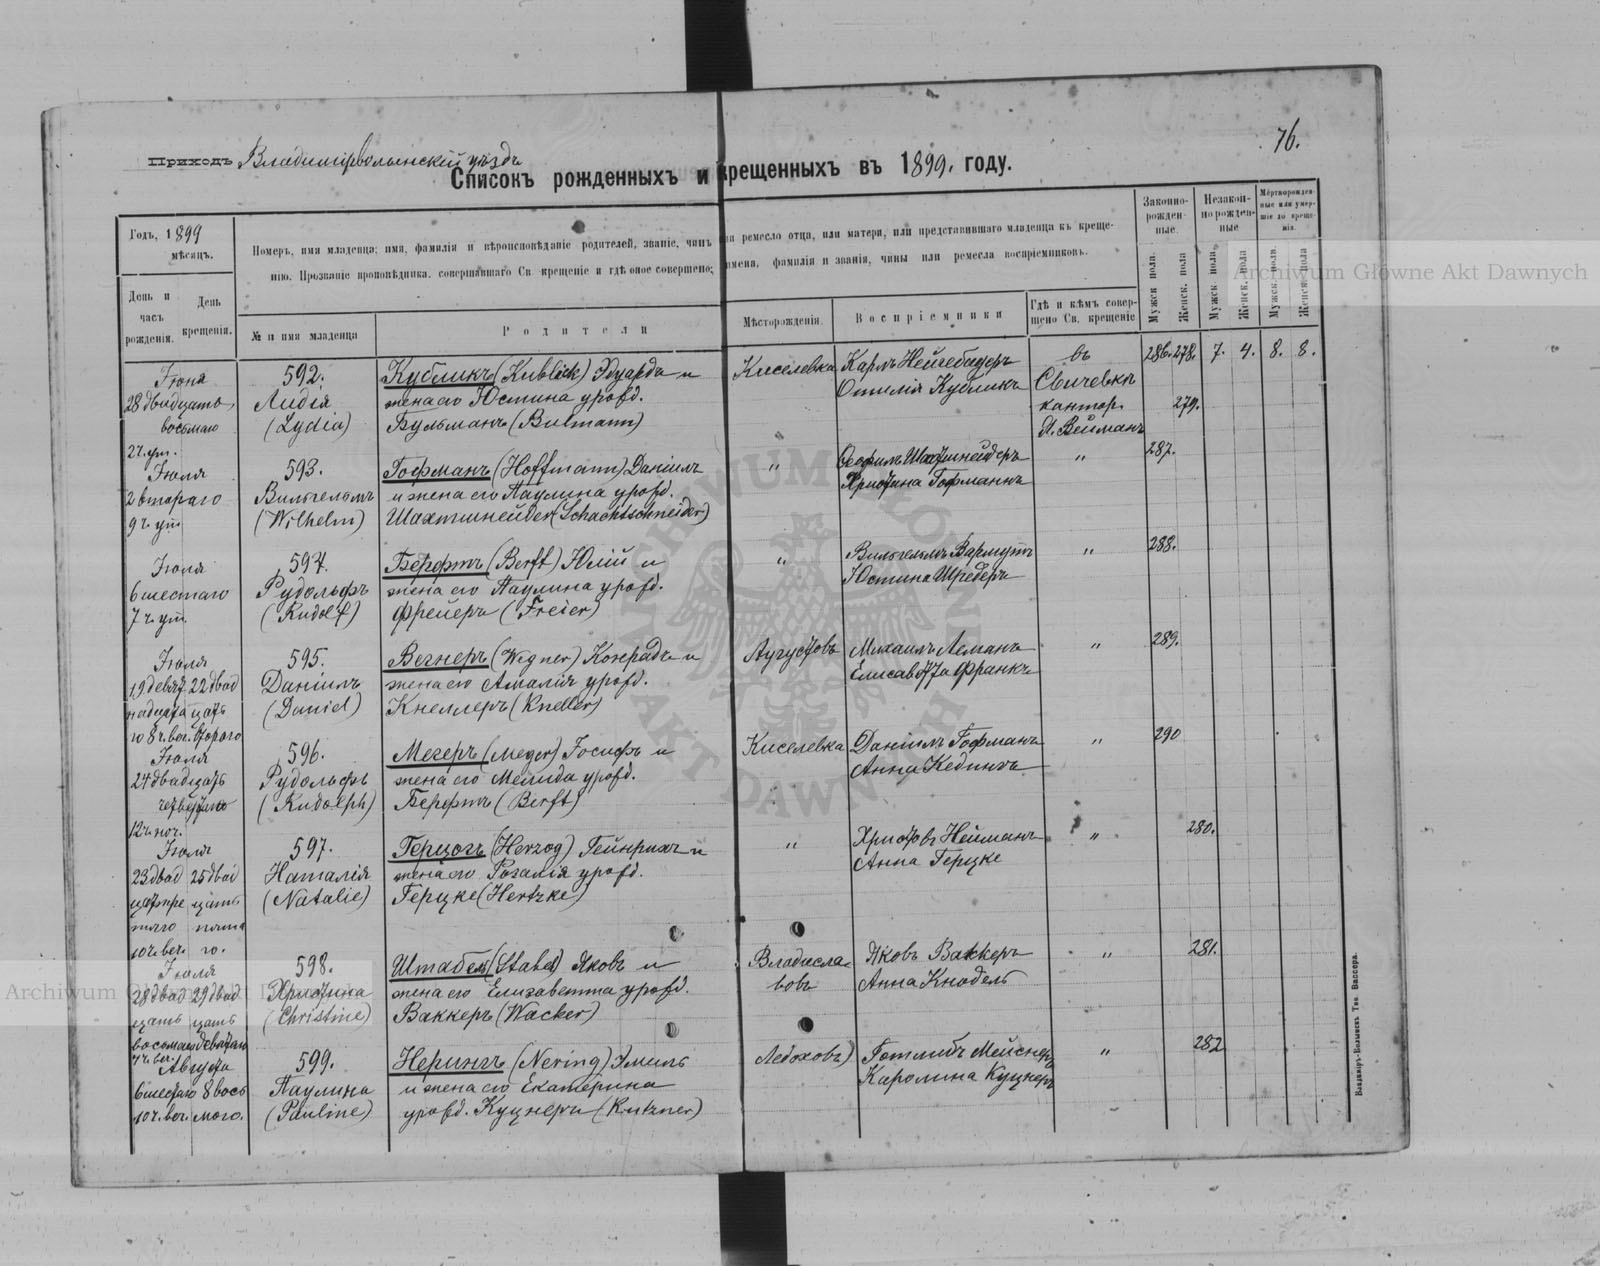 76.
Приходъ Владимірволынскій уѣздъ
Списокъ рожденныхъ и крещенныхъ въ 1899. году.
Годъ, 1899
мѣсяцъ.
День и часъ рожденія.
День крещенія.
Номеръ, имя младенца; имя, фамилія и вѣроисповѣданіе родителей, званіе, чинъ или ремесло отца, или матери, или представившаго младенца къ креще-
нію. Прозваніе проповѣдника, совершавшаго Св. крещеніе и гдѣ оное совершено; имена, фамилія и званія, чины или ремесла воспріемниковъ.
№ и имя младенца
Родители
Мѣсторожденія.
Воспріемники
Гдѣ и кѣмъ совер-
шено Св. крещеніе
Законно-
рожден-
ные.
Незакон-
норожден-
ные
Мертворожден-
ные или умер-
шіе до креще-
нія.
Мужск. пола.
Женск. пола
Мужск. пола
Женск. пола
Мужск. пола
Женск. пола
Іюня
28 двадцать
восьмаго
2 ч. ут.
592.
Лидія
(Lydia)
Кубликъ (Kublick) Эдуардъ и
жена его Юстина урожд.
Бульманъ (Bulmann)
Киселевка
Карлъ Нейгебауеръ
Отилія Кубликъ
въ
Свичевкѣ
кантор.
Л. Вейманъ
286. 278. 7. 4. 8. 8.
279.
Іюля
2 втораго
9 ч. ут.
593.
Вильгельмъ
(Wilhelm)
Гофманъ (Hoffmann) Даніилъ
и жена его Паулина урожд.
Шахтшнейдеръ (Schachtschneider)
"
Теофилъ Шахтшнейдеръ
Христина Гофманъ
"
287.
Іюля
6 шестаго
7 ч. ут.
594.
Рудольфъ
(Rudolf)
Берфтъ (Berft) Юлій и
жена его Паулина урожд.
Фрейеръ (Freier)
"
Вильгельмъ Вармутъ
Юстина Шредеръ
"
288.
Іюля
19 девят 22 двад
надцата цать
го 8 ч. веч. второго
595.
Даніилъ
(Daniel)
Вегнеръ (Wegner) Конрадъ и
жена его Амалія урожд.
Кнеллеръ (Kneller)
Аугустовъ
Михаилъ Леманъ
Елисавета Франкъ
"
289.
Іюля
24 двадцать
четвертаго
12 ч. ноч.
596.
Рудольфъ
(Rudolph)
Мегеръ (Meger) Іосифъ и
жена его Мелида урожд.
Берфтъ (Berft)
Киселевка
Даніилъ Гофманъ
Анна Кединъ
"
290
Іюля
23 двад 25 двад
цать тре цать
тяго пята
10 ч. веч. го.
597.
Наталія
(Natalie)
Герцогъ (Herzog) Гейнрихъ и
жена его Розалія урожд.
Герцке (Hertzke)
"
Христовъ Нейманъ
Анна Герцке
"
280.
Іюля
28 двад 29 двад
цать цать
восьмаго девятаго
7 ч. веч.
598.
Христина
(Christine)
Штабель (Stabel) Яковъ и
жена его Елизавета урожд.
Ваккеръ (Wacker)
Владисла-
вовъ
Яковъ Ваккеръ
Анна Кнодель
"
281.
Августа
6 шестаго 8 вось
10 ч. веч. мого.
599.
Паулина
(Pauline)
Нерингъ (Nering) Эмиль
и жена его Екатерина
урожд. Куцнеръ (Kutzner)
Ледоховъ
Готлибъ Мейснеръ
Каролина Куцнеръ
"
282
Владиміръ-Волынскъ Тип. Вассера.
Archiwum Główne Akt Dawnych
Archiwum Główne Akt Dawnych
ARCHIWUM GŁÓWNE AKT DAWNYCH